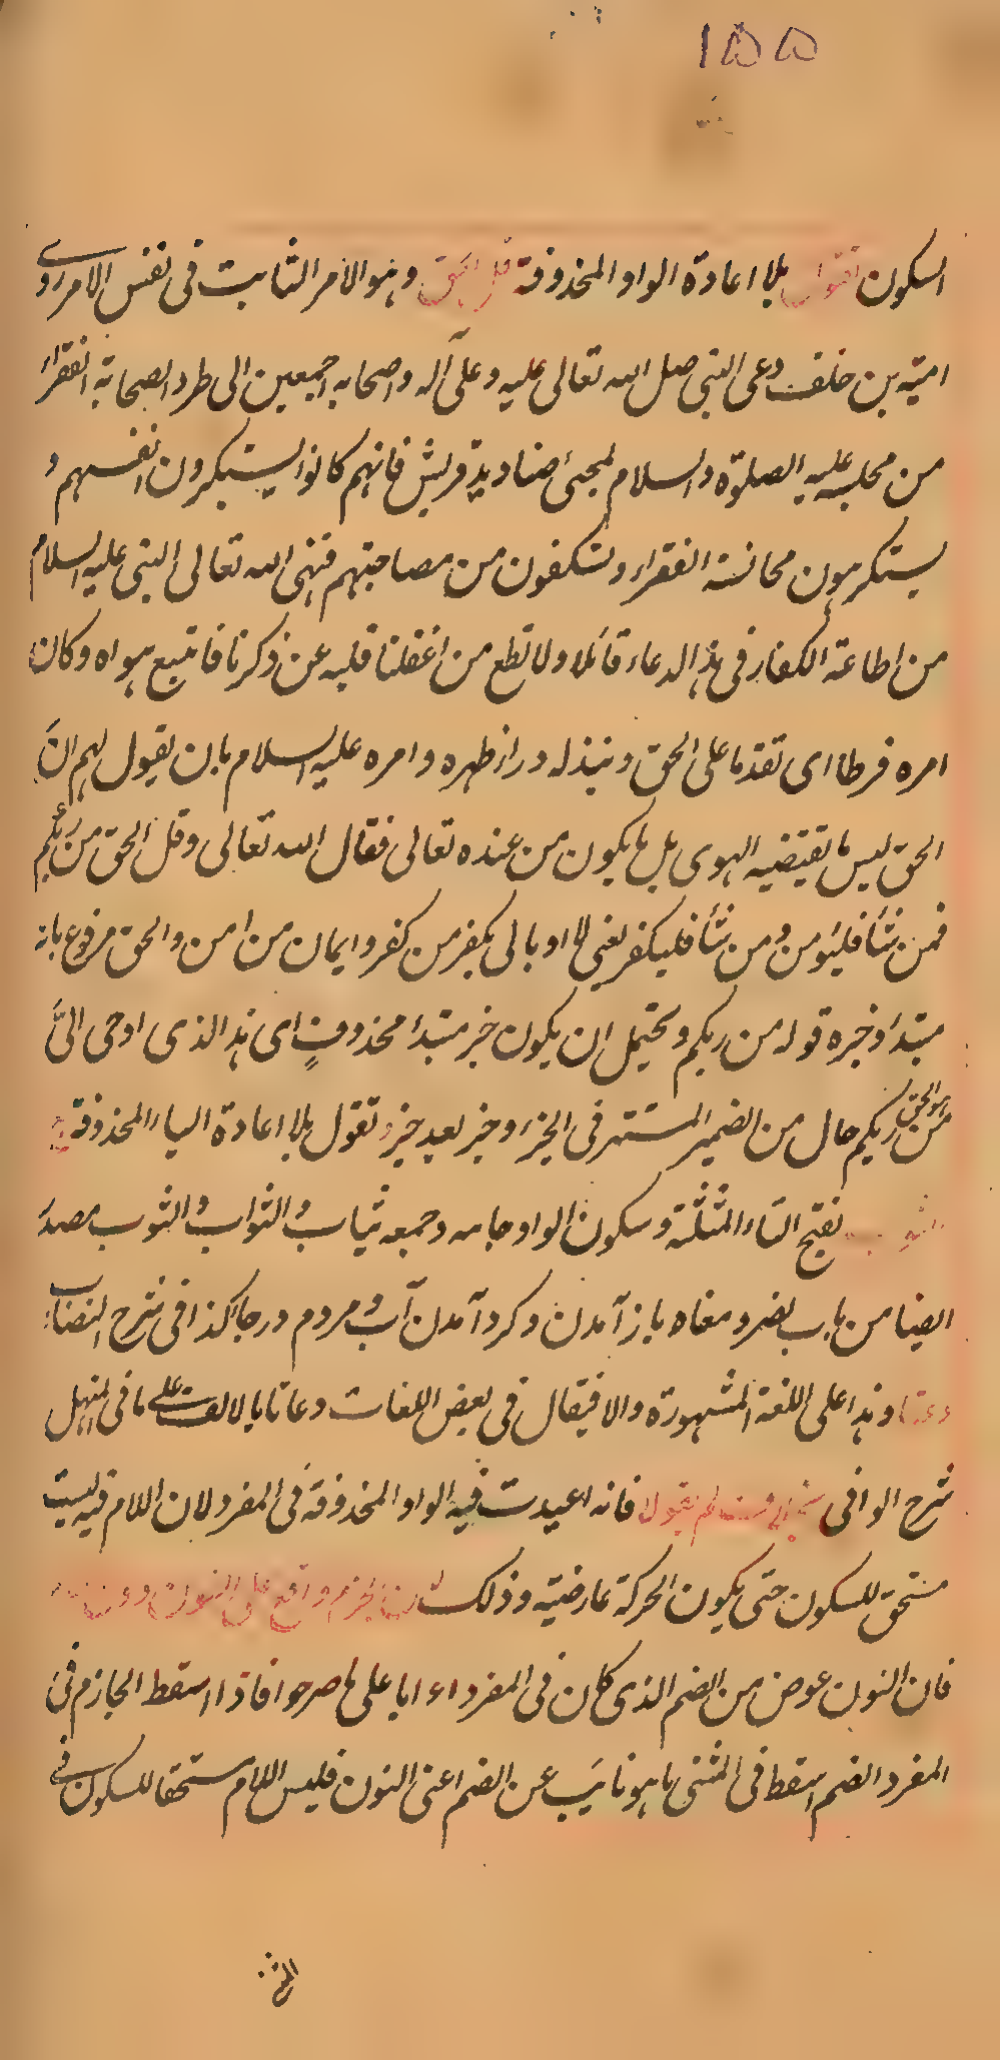 ۱۵۵
السكون تقول بلا اعادة الواو المحذوفة قل الحق وهو الامر الثابت فى نفس الامر روى
امية بن خلف دعى النبى صلى الله تعالى عليه وعلى آله واصحابه اجمعين الى طرد الصحابة الفقراء
من مجلسه عليه الصلوة والسلام لمجئ صناديد قريش فانهم كانوا يستكبرون انفسهم و
يستكرهون مجانسة الفقراء وتنكفون من مصاحبتهم فنهى الله تعالى النبى عليه السلام
من اطاعة الكفار فى هذا الدعاء قائلا ولا تطع من اغفلنا قلبه عن ذكرنا فاتبع هواه وكان
امره فرطا اى تقدما على الحق ونبذ له وراء ظهره وامره عليه السلام بان يقول لهم ان
الحق ليس ما يقتضيه الهوى بل ما يكون من عنده تعالى فقال الله تعالى وقل الحق من ربكم
فمن شأ فليؤمن ومن شأ فليكفر يعنى لا ابالى بكفر من كفر وايمان من امن والحق مرفوع بانه
مبتدأ وخبره قوله من ربكم ويحتمل ان يكون خبر مبتدأ محذوف اى هذا الذى اوحى الىّ
هو الحق
من ربكم حال من الضمير المستتر فى الخبر او خبر بعد خبر تقول بلا اعادة الياء المحذوفة
بفتح الثاء المثلثة وسكون الواو جامه وجمعه ثياب و اثواب و الثوب مصدر
ايضا من باب نصر ومعناه باز آمدن وكرد آمدن آب و مردم در جا كذا فى شرح النصاب
دعتا وهذا على اللغة المشهورة والا فيقال فى بعض اللغات دعاتا بالالف على ما فى المنهل
شرح الوافى بخلاف لم يقولا فانه اعيدت فيه الواو المحذوفة فى المفرد لان اللام فيه ليست
مستحق للسكون حتى يكون الحركة عارضية وذلك لان الجزم واقع على النون دون
فان النون عوض من الضم الذى كان فى المفرد على ما صرحوا فاذا اسقط الجازم فى
المفرد الضم اسقط فى المثنى ما هو نائب عن الضم اعنى النون فليس اللام مستحقا للسكون فى